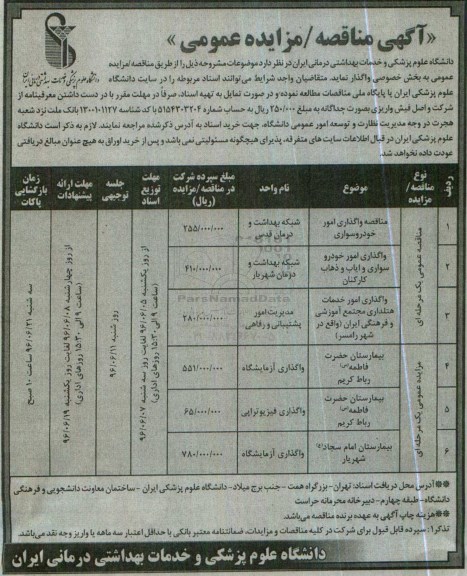 «آگهی مناقصه/مزایده عمومی»
دانشگاه علوم پزشکی و خدمات بهداشتی درمانی ایران در نظر دارد موضوعات مشروحه ذیل را از طریق مناقصه/مزایده
عمومی به بخش خصوصی واگذار نماید. متقاضیان واجد شرایط می‌توانند اسناد مربوطه را در سایت دانشگاه
علوم پزشکی ایران یا پایگاه ملی مناقصات مطالعه نموده و در صورت تمایل به تهیه اسناد، صرفاً در مهلت مقرر با در دست داشتن معرفینامه از
شرکت و اصل فیش واریزی بصورت جداگانه به مبلغ ۲۵۰/۰۰۰ ریال به حساب شماره ۵۱۵۴۳۰۳۲۰۴ با کد شناسه ۱۳۰۰۱۰۱۱۲۷ بانک ملت نزد شعبه
هجرت در وجه مدیریت نظارت و توسعه امور عمومی دانشگاه، جهت خرید اسناد به آدرس ذکر شده مراجعه نمایند. لازم به ذکر است دانشگاه
علوم پزشکی ایران در قبال اطلاعات سایت های متفرقه، پذیرای هیچگونه مسئولیتی نمی باشد و پس از خرید اوراق به هیچ عنوان مبالغ دریافتی
عودت داده نخواهد شد.
ردیف | نوع مناقصه/مزایده | موضوع | نام واحد | مبلغ سپرده شرکت در مناقصه/مزایده (ریال) | مهلت توزیع اسناد | جلسه توجیهی | مهلت ارائه پیشنهادات | زمان بازگشایی پاکات
۱ | مناقصه عمومی یک مرحله ای | مناقصه واگذاری امور خودروسواری | شبکه بهداشت و درمان قدس | ۲۵۵/۰۰۰/۰۰۰
۲ | واگذاری امور خودرو سواری و ایاب و ذهاب کارکنان | شبکه بهداشت و درمان شهریار | ۴۱۰/۰۰۰/۰۰۰
۳ | واگذاری امور خدمات هتلداری مجتمع آموزشی و فرهنگی ایران (واقع در شهر رامسر) | مدیریت امور پشتیبانی و رفاهی | ۲۸۰/۰۰۰/۰۰۰
۴ | مزایده عمومی یک مرحله ای | بیمارستان حضرت فاطمه(س) رباط کریم | واگذاری آزمایشگاه | ۵۵۱/۰۰۰/۰۰۰
۵ | بیمارستان حضرت فاطمه(س) رباط کریم | واگذاری فیزیوتراپی | ۶۵/۰۰۰/۰۰۰
۶ | بیمارستان امام سجاد(ع) شهریار | واگذاری آزمایشگاه | ۷۸۰/۰۰۰/۰۰۰
از روز یکشنبه ۹۶/۰۶/۰۵ لغایت روز سه شنبه ۹۶/۰۶/۰۷
(ساعت ۹ الی ۱۵:۳۰ روزهای اداری)
روز شنبه ۹۶/۰۶/۱۱
از روز چهارشنبه ۹۶/۰۶/۰۸ لغایت روز یکشنبه ۹۶/۰۶/۱۹
(ساعت ۹ الی ۱۵:۳۰ روزهای اداری)
سه شنبه ۹۶/۰۶/۲۱ ساعت ۱۰ صبح
ParsNamadData
**آدرس محل دریافت اسناد: تهران- بزرگراه همت - جنب برج میلاد- دانشگاه علوم پزشکی ایران - ساختمان معاونت دانشجویی و فرهنگی
دانشگاه- طبقه چهارم- دبیرخانه محرمانه حراست
**هزینه چاپ آگهی به عهده برنده مناقصه می باشد.
تذکر: سپرده قابل قبول برای شرکت در کلیه مناقصات و مزایدات، ضمانتنامه معتبر بانکی با حداقل اعتبار سه ماهه یا واریز وجه نقد می باشد.
دانشگاه علوم پزشکی و خدمات بهداشتی درمانی ایران